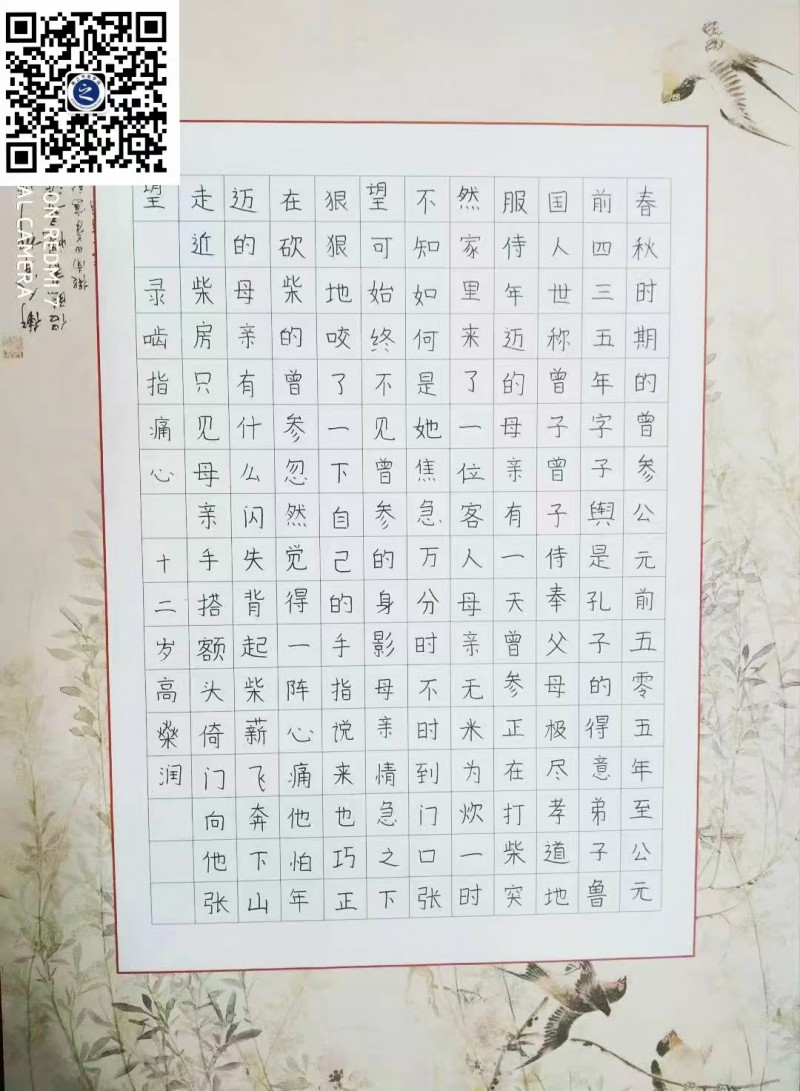 春秋时期的曾参公元前五零五年至公元
前四三五年字子舆是孔子的得意弟子鲁
国人世称曾子曾子侍奉父母极尽孝道地
服侍年迈的母亲有一天曾参正在打柴突
然家里来了一位客人母亲无米为炊一时
不知如何是她焦急万分时不时到门口张
望可始终不见曾参的身影母亲情急之下
狠狠地咬了一下自己的手指说来也巧正
在砍柴的曾参忽然觉得一阵心痛他怕年
迈的母亲有什么闪失背起柴薪飞奔下山
走近柴房只见母亲手搭额头倚门向他张
望
录啮指痛心 十二岁高燊润
REDMI 7
AL CAMERA